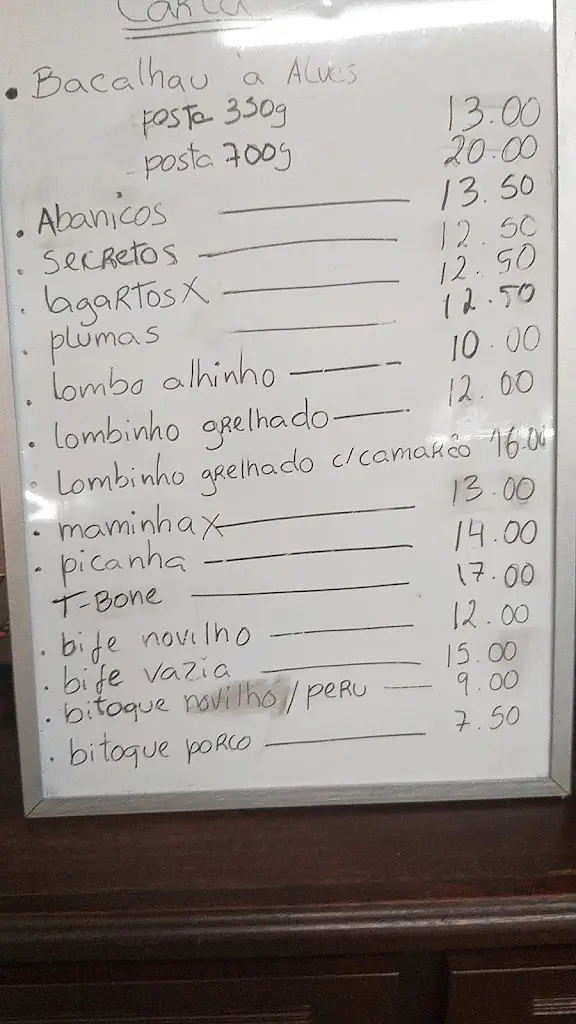 Carta
• Bacalhau à Alves
posta 350g 13.00
- posta 700g 20.00
• Abanicos ——— 13.50
• Secretos ——— 12.50
• lagartos X ——— 12.50
• plumas ——— 12.50
• lombo alhinho ——— 10.00
• lombinho grelhado ——— 12.00
• Lombinho grelhado c/camarão 16.00
• maminha X ——— 13.00
• picanha ——— 14.00
T-Bone ——— 17.00
• bife novilho ——— 12.00
• bife vazia ——— 15.00
• bitoque novilho/peru —— 9.00
• bitoque porco ——— 7.50